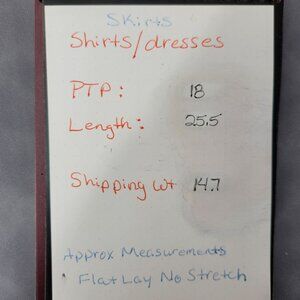 Skirts
Shirts/dresses
PTP: 18
Length: 25.5
Shipping wt 14.7
Approx Measurements
Flat Lay No Stretch